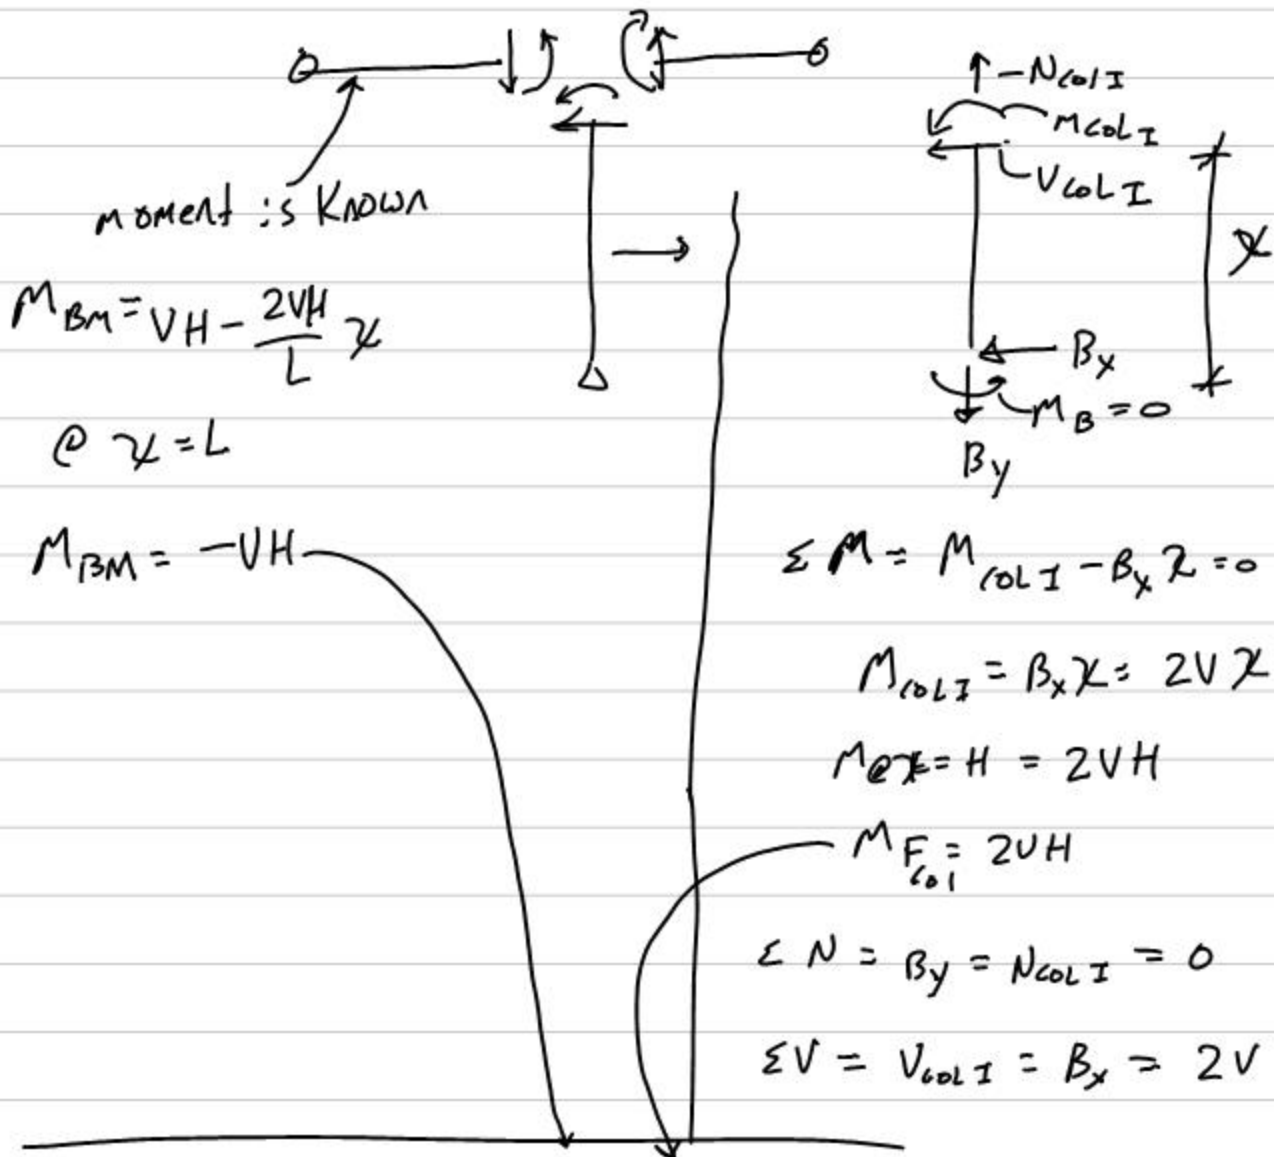 moment is Known
M_BM = VH - 2VH/L x
@ x = L
M_BM = -VH
-N_COL I
M_COL I
V_COL I
x
B_x
M_B = 0
B_y
ΣM = M_COL I - B_x x = 0
M_COL I = B_x x = 2V x
M @ x = H = 2VH
M_F col = 2VH
ΣN = B_y = N_COL I = 0
ΣV = V_COL I = B_x = 2V